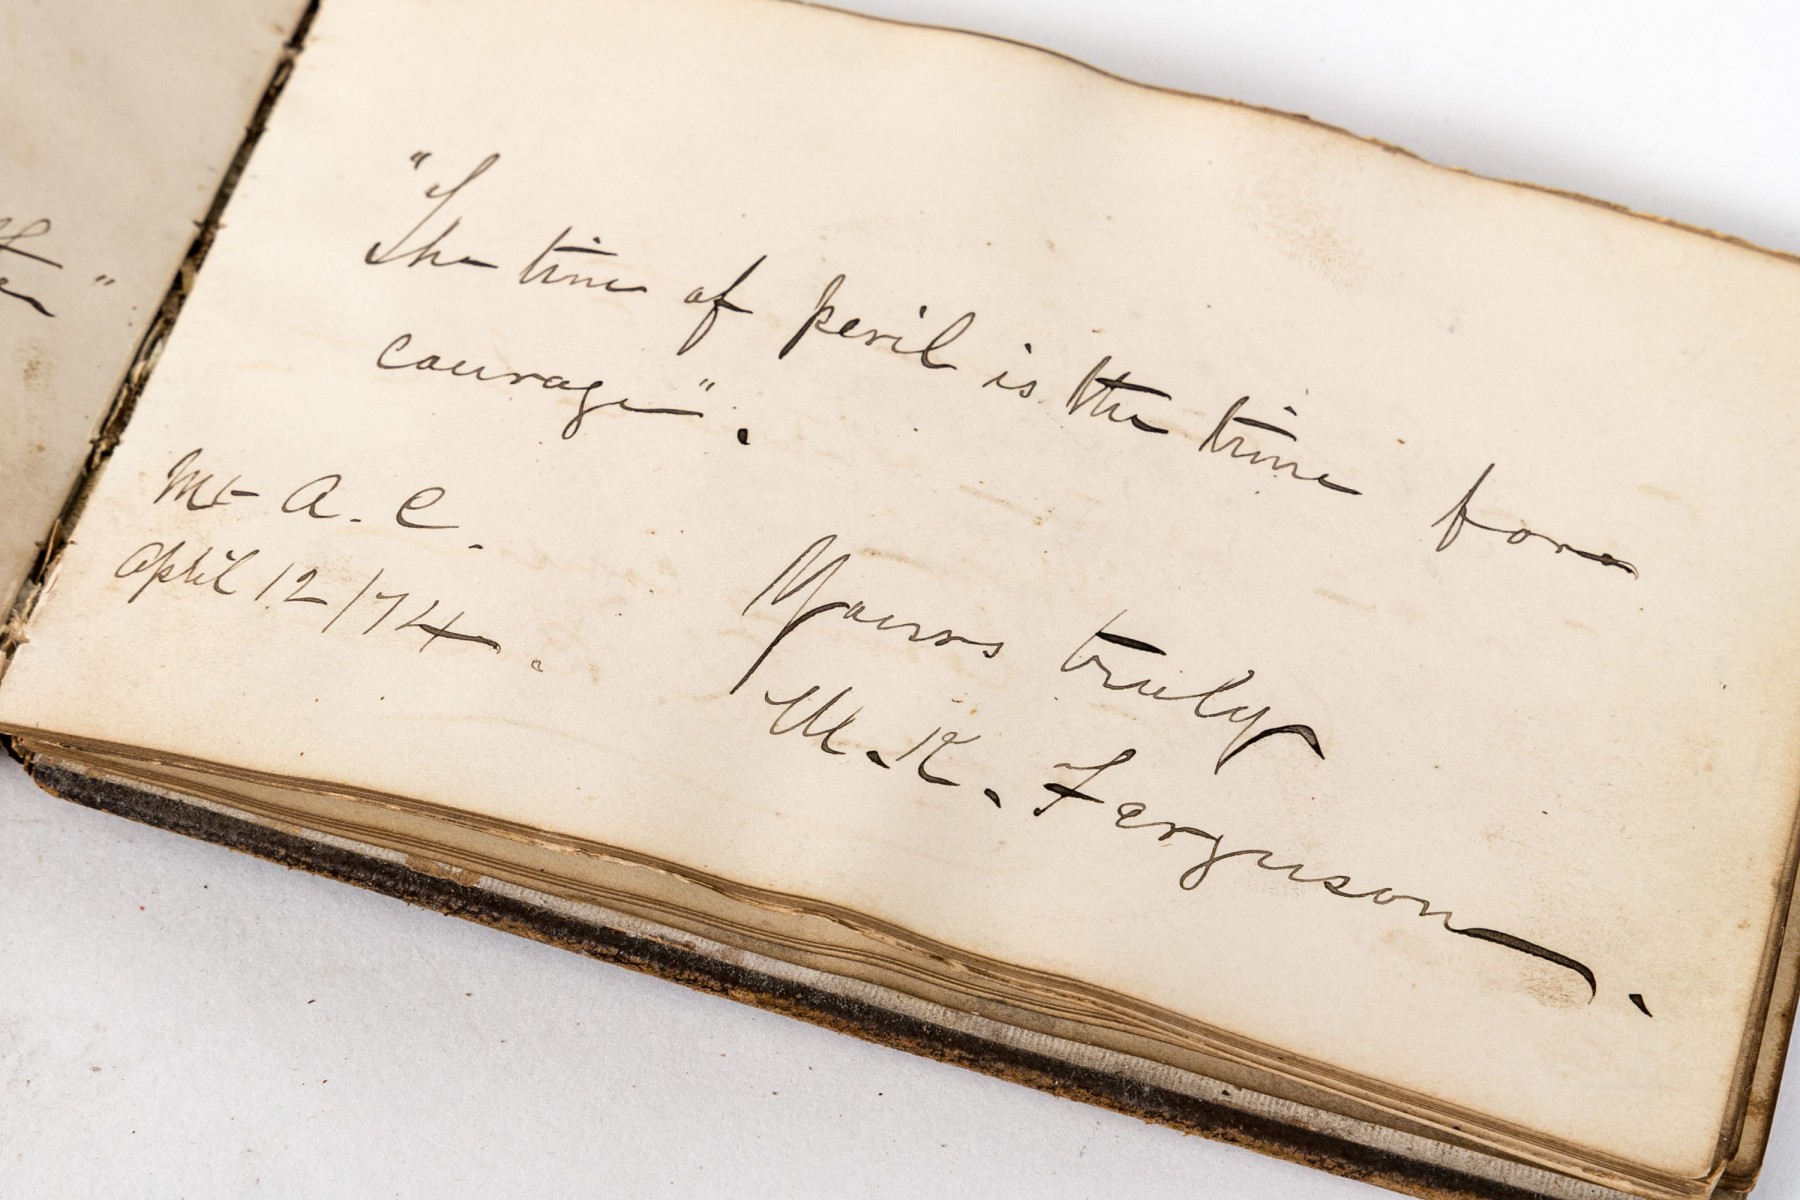 "The time of peril is the time for
courage".
Mt A. C.
April 12/74.
Yours truly
M. K. Ferguson.